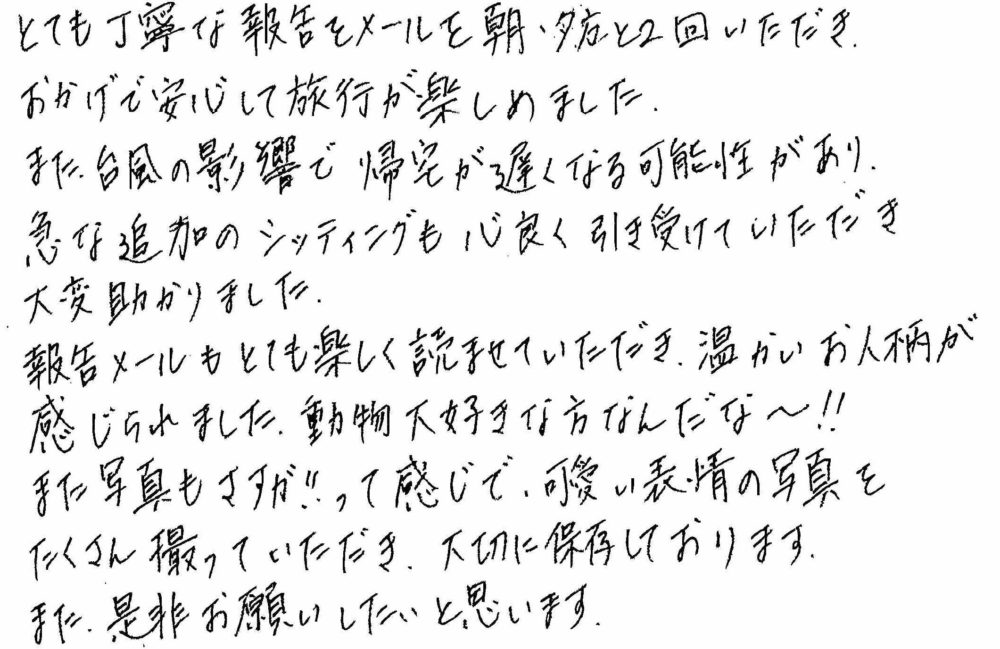 とても丁寧な報告をメールを朝、夕方と2回いただき、
おかげで安心して旅行が楽しめました。
また、台風の影響で帰宅が遅くなる可能性があり、
急な追加のシッティングも心良く引き受けていただき
大変助かりました。
報告メールもとても楽しく読ませていただき、温かいお人柄が
感じられました。動物大好きな方なんだな〜!!
また写真もさすが!!って感じで、可愛い表情の写真を
たくさん撮っていただき、大切に保存しております。
また、是非お願いしたいと思います。